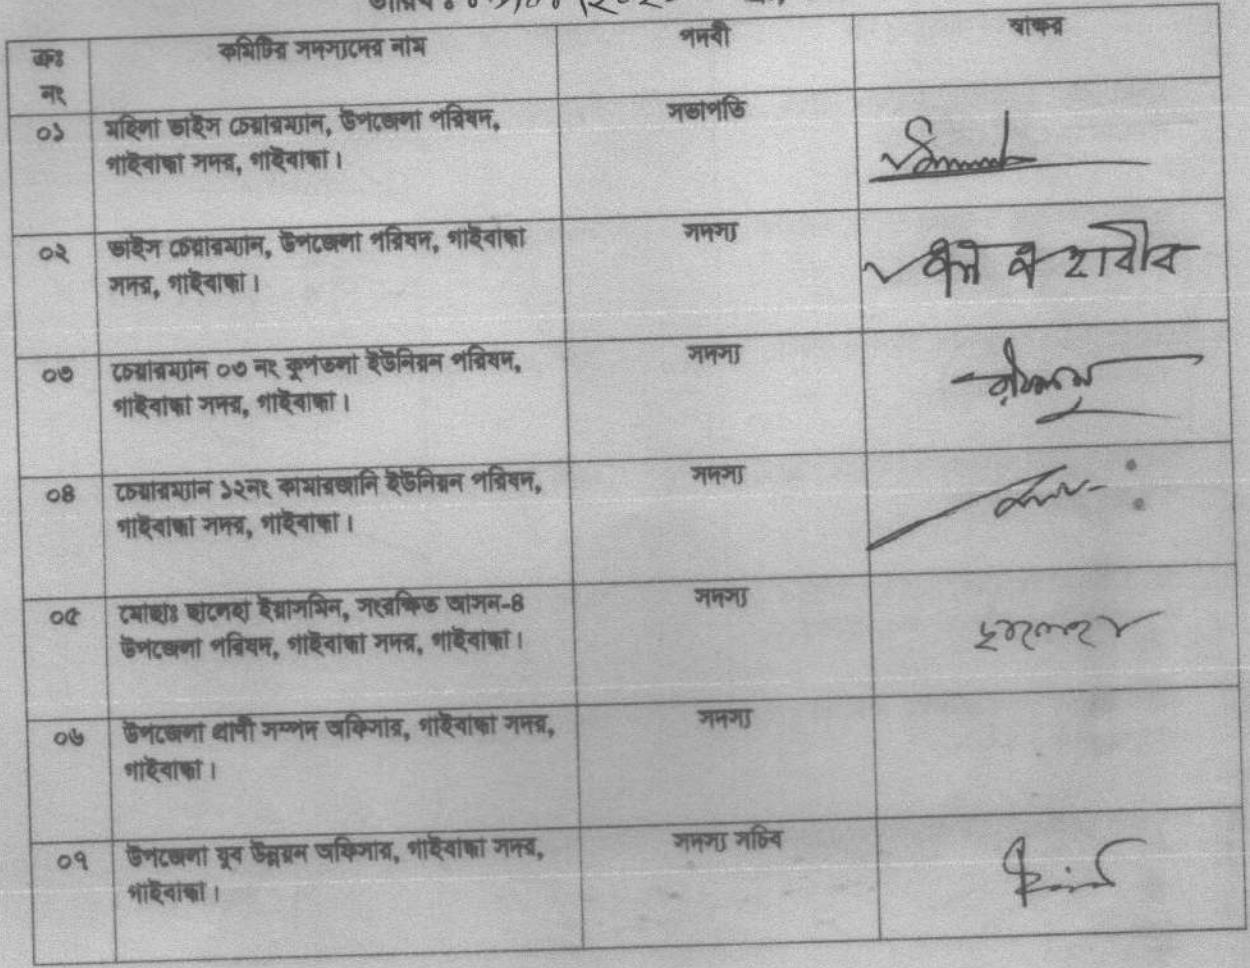 তারিখ ঃ
ক্রঃ নং কমিটির সদস্যদের নাম পদবী স্বাক্ষর
০১ মহিলা ভাইস চেয়ারম্যান, উপজেলা পরিষদ, সভাপতি
গাইবান্ধা সদর, গাইবান্ধা।
০২ ভাইস চেয়ারম্যান, উপজেলা পরিষদ, গাইবান্ধা সদস্য
সদর, গাইবান্ধা।
০৩ চেয়ারম্যান ০৩ নং কূপতলা ইউনিয়ন পরিষদ, সদস্য
গাইবান্ধা সদর, গাইবান্ধা।
০৪ চেয়ারম্যান ১২নং কামারজানি ইউনিয়ন পরিষদ, সদস্য
গাইবান্ধা সদর, গাইবান্ধা।
০৫ মোছাঃ ছালেহা ইয়াসমিন, সংরক্ষিত আসন-৪ সদস্য
উপজেলা পরিষদ, গাইবান্ধা সদর, গাইবান্ধা।
০৬ উপজেলা প্রাণী সম্পদ অফিসার, গাইবান্ধা সদর, সদস্য
গাইবান্ধা।
০৭ উপজেলা যুব উন্নয়ন অফিসার, গাইবান্ধা সদর, সদস্য সচিব
গাইবান্ধা।